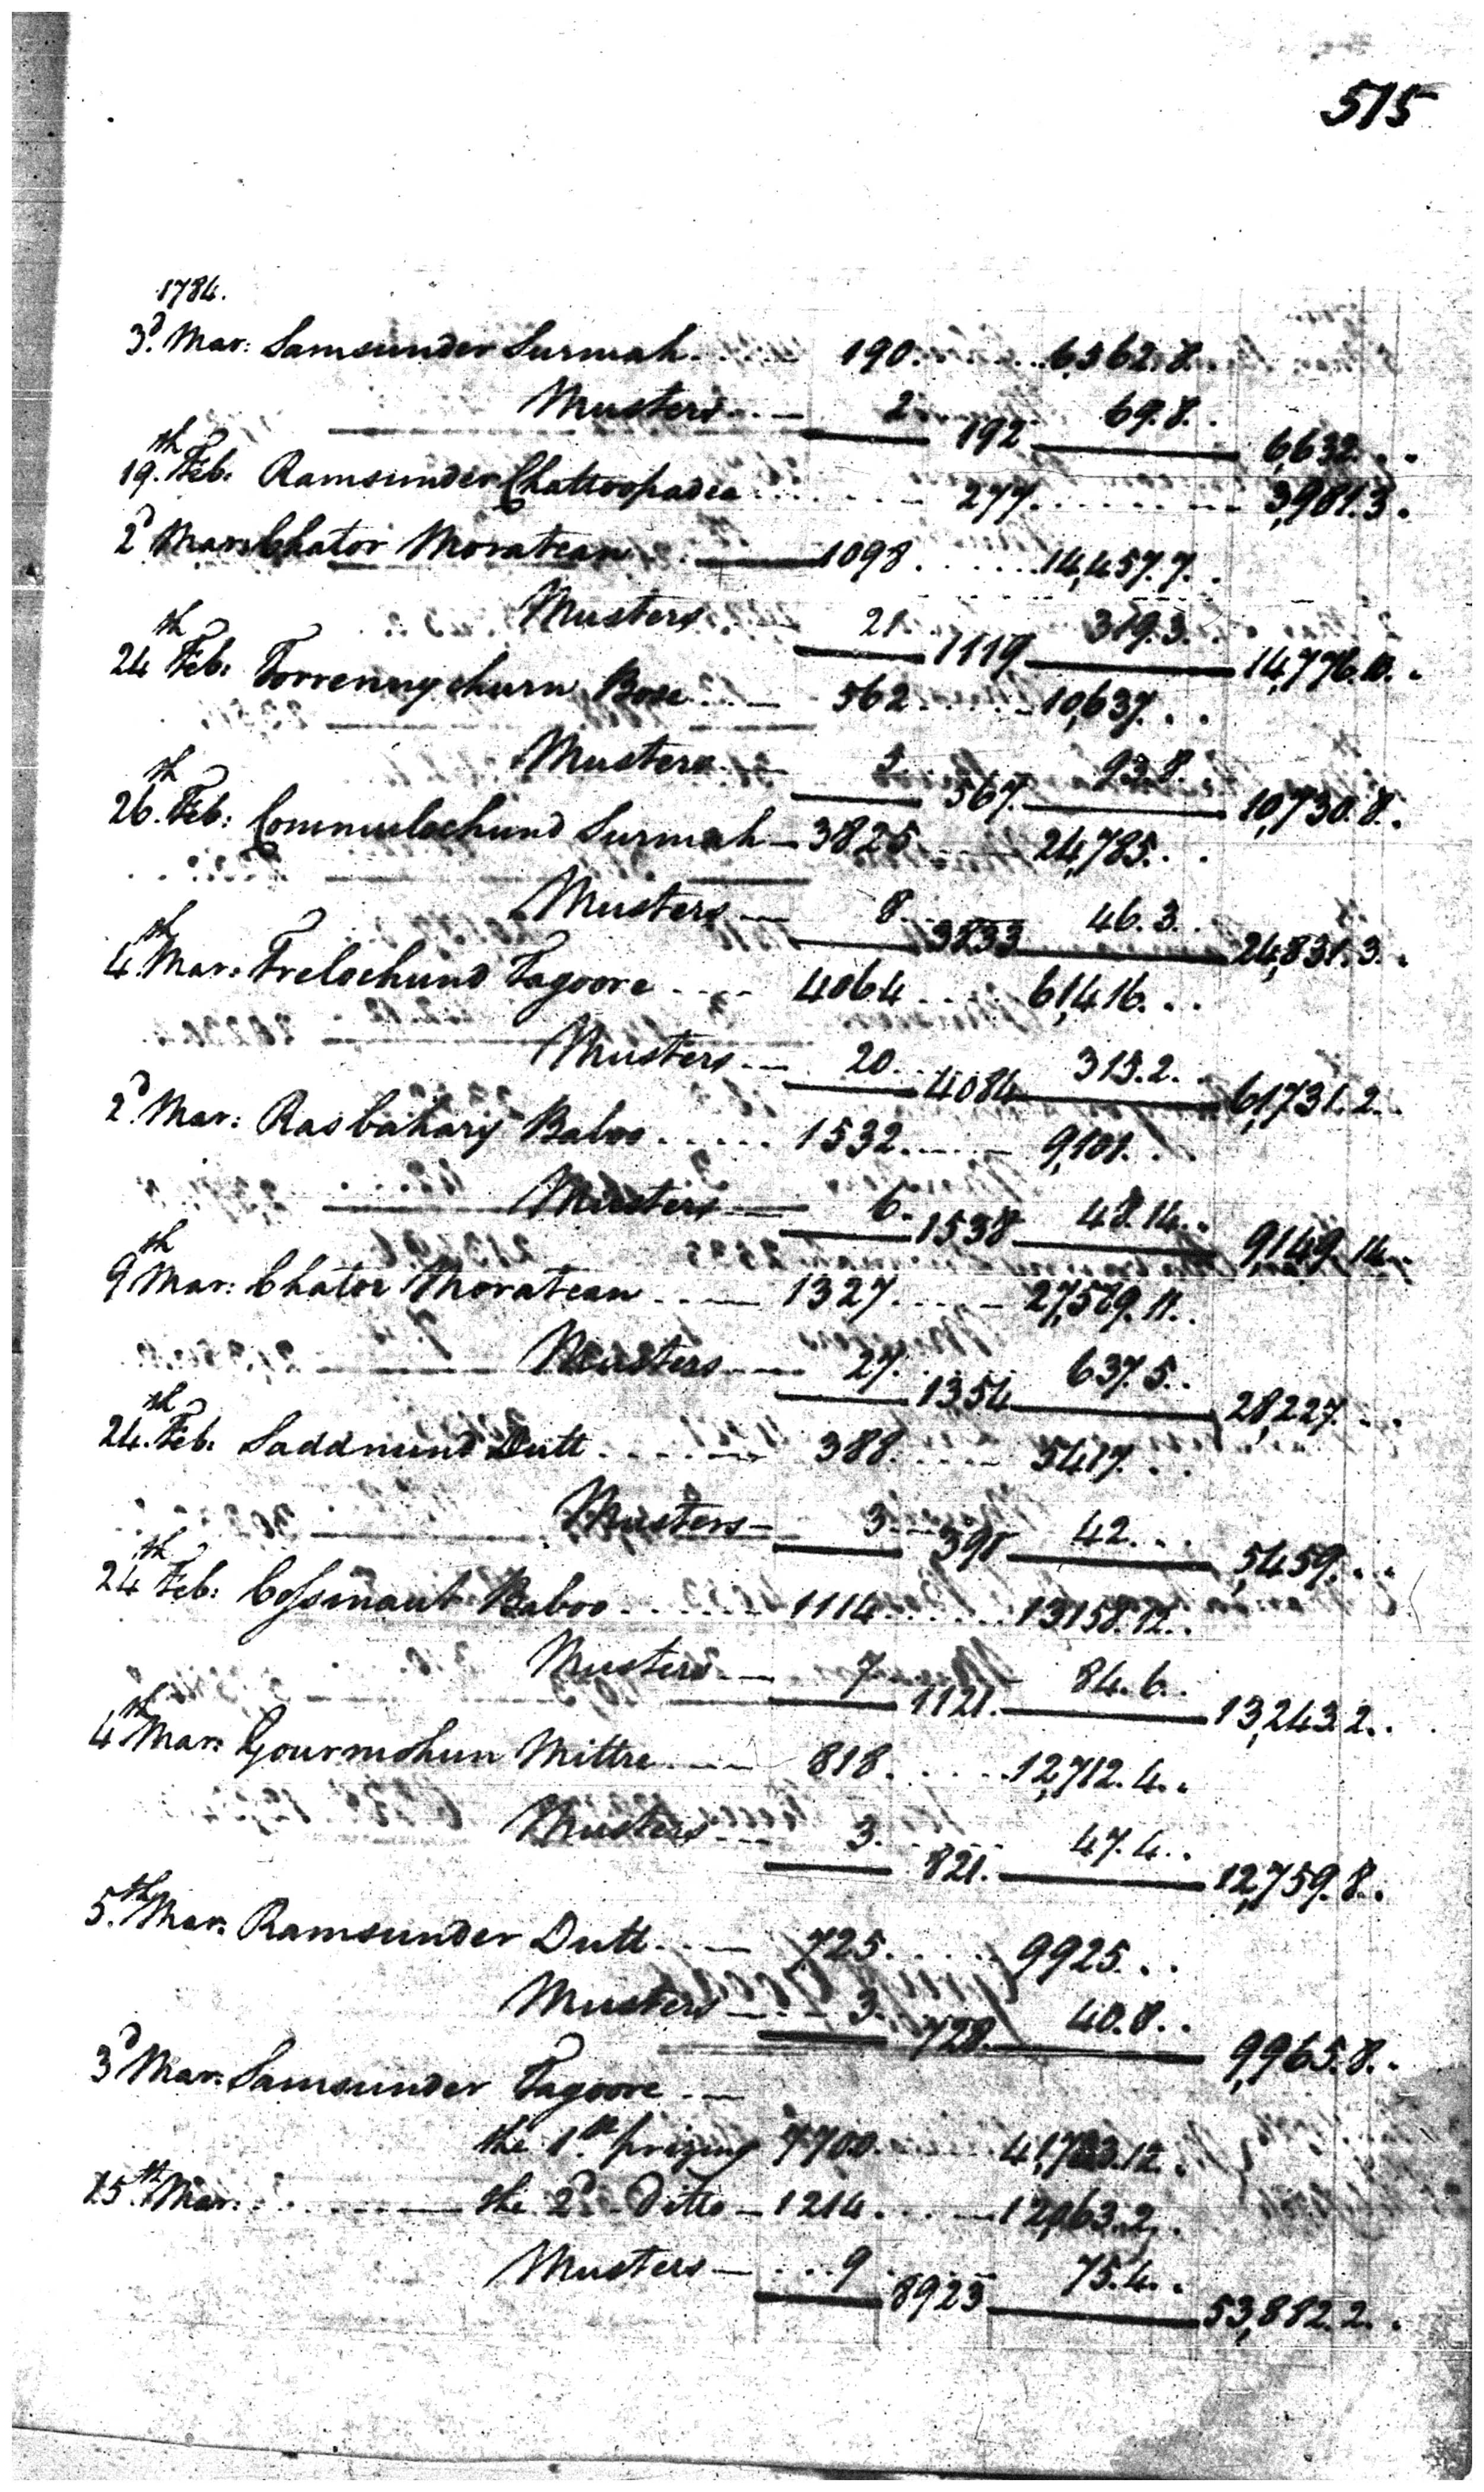 515
1784.
3d. Mar: Samsunder Surmah 190. 6,562.8.
Musters 2 69.8.
192 6,632.
19th. Feb: Ramsunder Chattoopadea 277. 3,981.3.
2d Mar: Chator Moratean 1098 14,457.7.
Musters 21 319.3.
1119 14,776.10.
24th Feb: Torrennychurn Bose 562 10,637.
Musters 5 93.8.
567. 10,730.8.
26th. Feb: Commulochund Surmah 3825 24,785.
Musters 8 46.3.
3833 24,831.3.
4th Mar: Trelochund Tagoore 4064 61,416.
Musters 20 315.2.
4084 61,731.2.
2d. Mar: Rasbahary Baboo 1532. 9,101.
Musters 6. 48.14.
1538 9,149.14.
9th Mar: Chator Moratean 1327. 27,589.11.
Musters 27. 637.5.
1354 28,227.
24th. Feb: Saddnund Dutt 388. 5417.
Musters 3 42.
391 5,459.
24th Feb: Cossinaut Baboo 1114 13158.12.
Musters 7 84.6.
1121. 13,243.2.
4th Mar: Gourmohun Mittre 818. 12,712.4.
Musters 3. 47.4.
821. 12,759.8.
5.th Mar: Ramsunder Dutt 725. 9925.
Musters 3. 40.8.
728. 9,965.8.
3d Mar: Samsunder Tagoore
the 1st prizing 7700. 41,743.12.
15th. Mar: the 2d Ditto 1214. 12,063.2.
Musters 9 75.4.
8923 53,882.2.